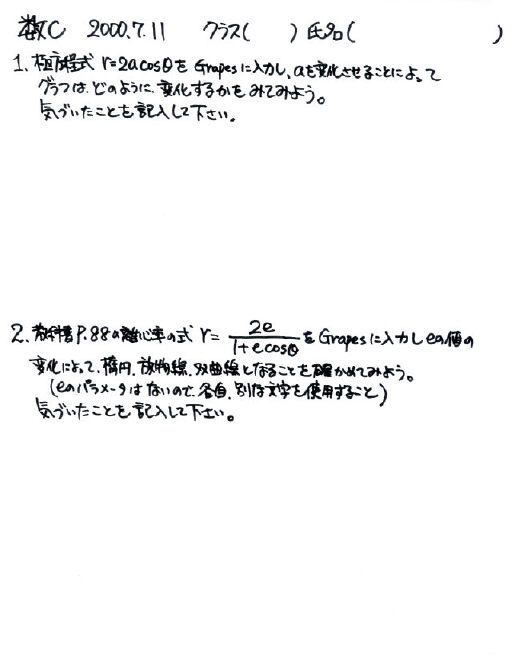 数C 2000.7.11 クラス( ) 氏名( )
1. 極方程式 r=2acosθを Grapesに入力し、aを変化させることによって
グラフは、どのように、変化するかをみてみよう。
気づいたことを記入して下さい。
2. 教科書P.88の離心率の式 r= 2e/(1+ecosθ) をGrapesに入力しeの値の
変化によって、楕円、放物線、双曲線となることを確かめてみよう。
(eのパラメータはないので、各自、別な文字を使用すること)
気づいたことを記入して下さい。